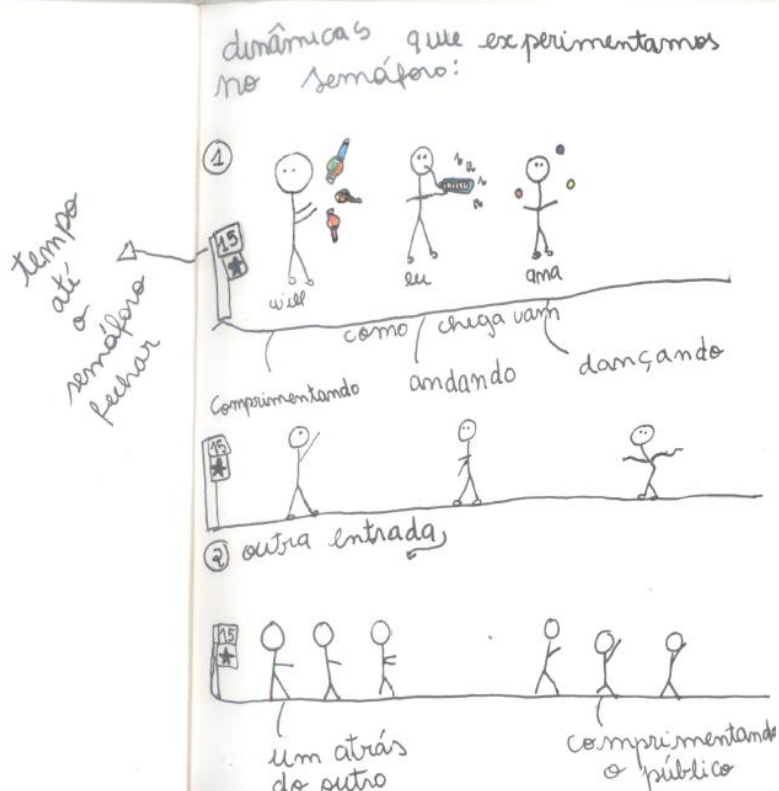 dinâmicas que experimentamos
no semáforo:
1
15
tempo
até
o
semáforo
fechar
will
eu
ana
como chegavam
comprimentando
andando
dançando
15
2 outra entrada
15
um atrás
do outro
comprimentando
o público